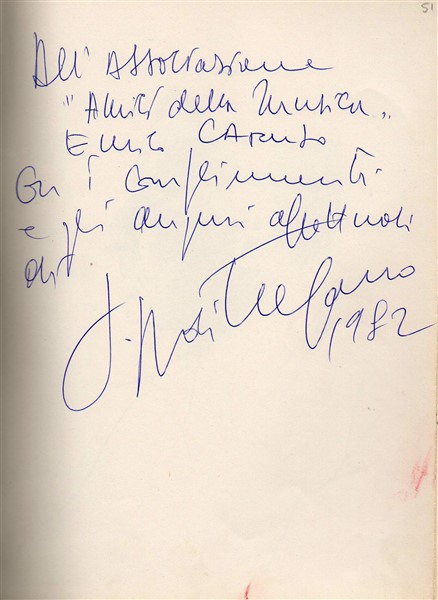 51
All' Associazione
"Amici della Musica„
Enrico Caruso
Con i complimenti
e gli auguri affettuosi
di
G. Di Stefano
1982